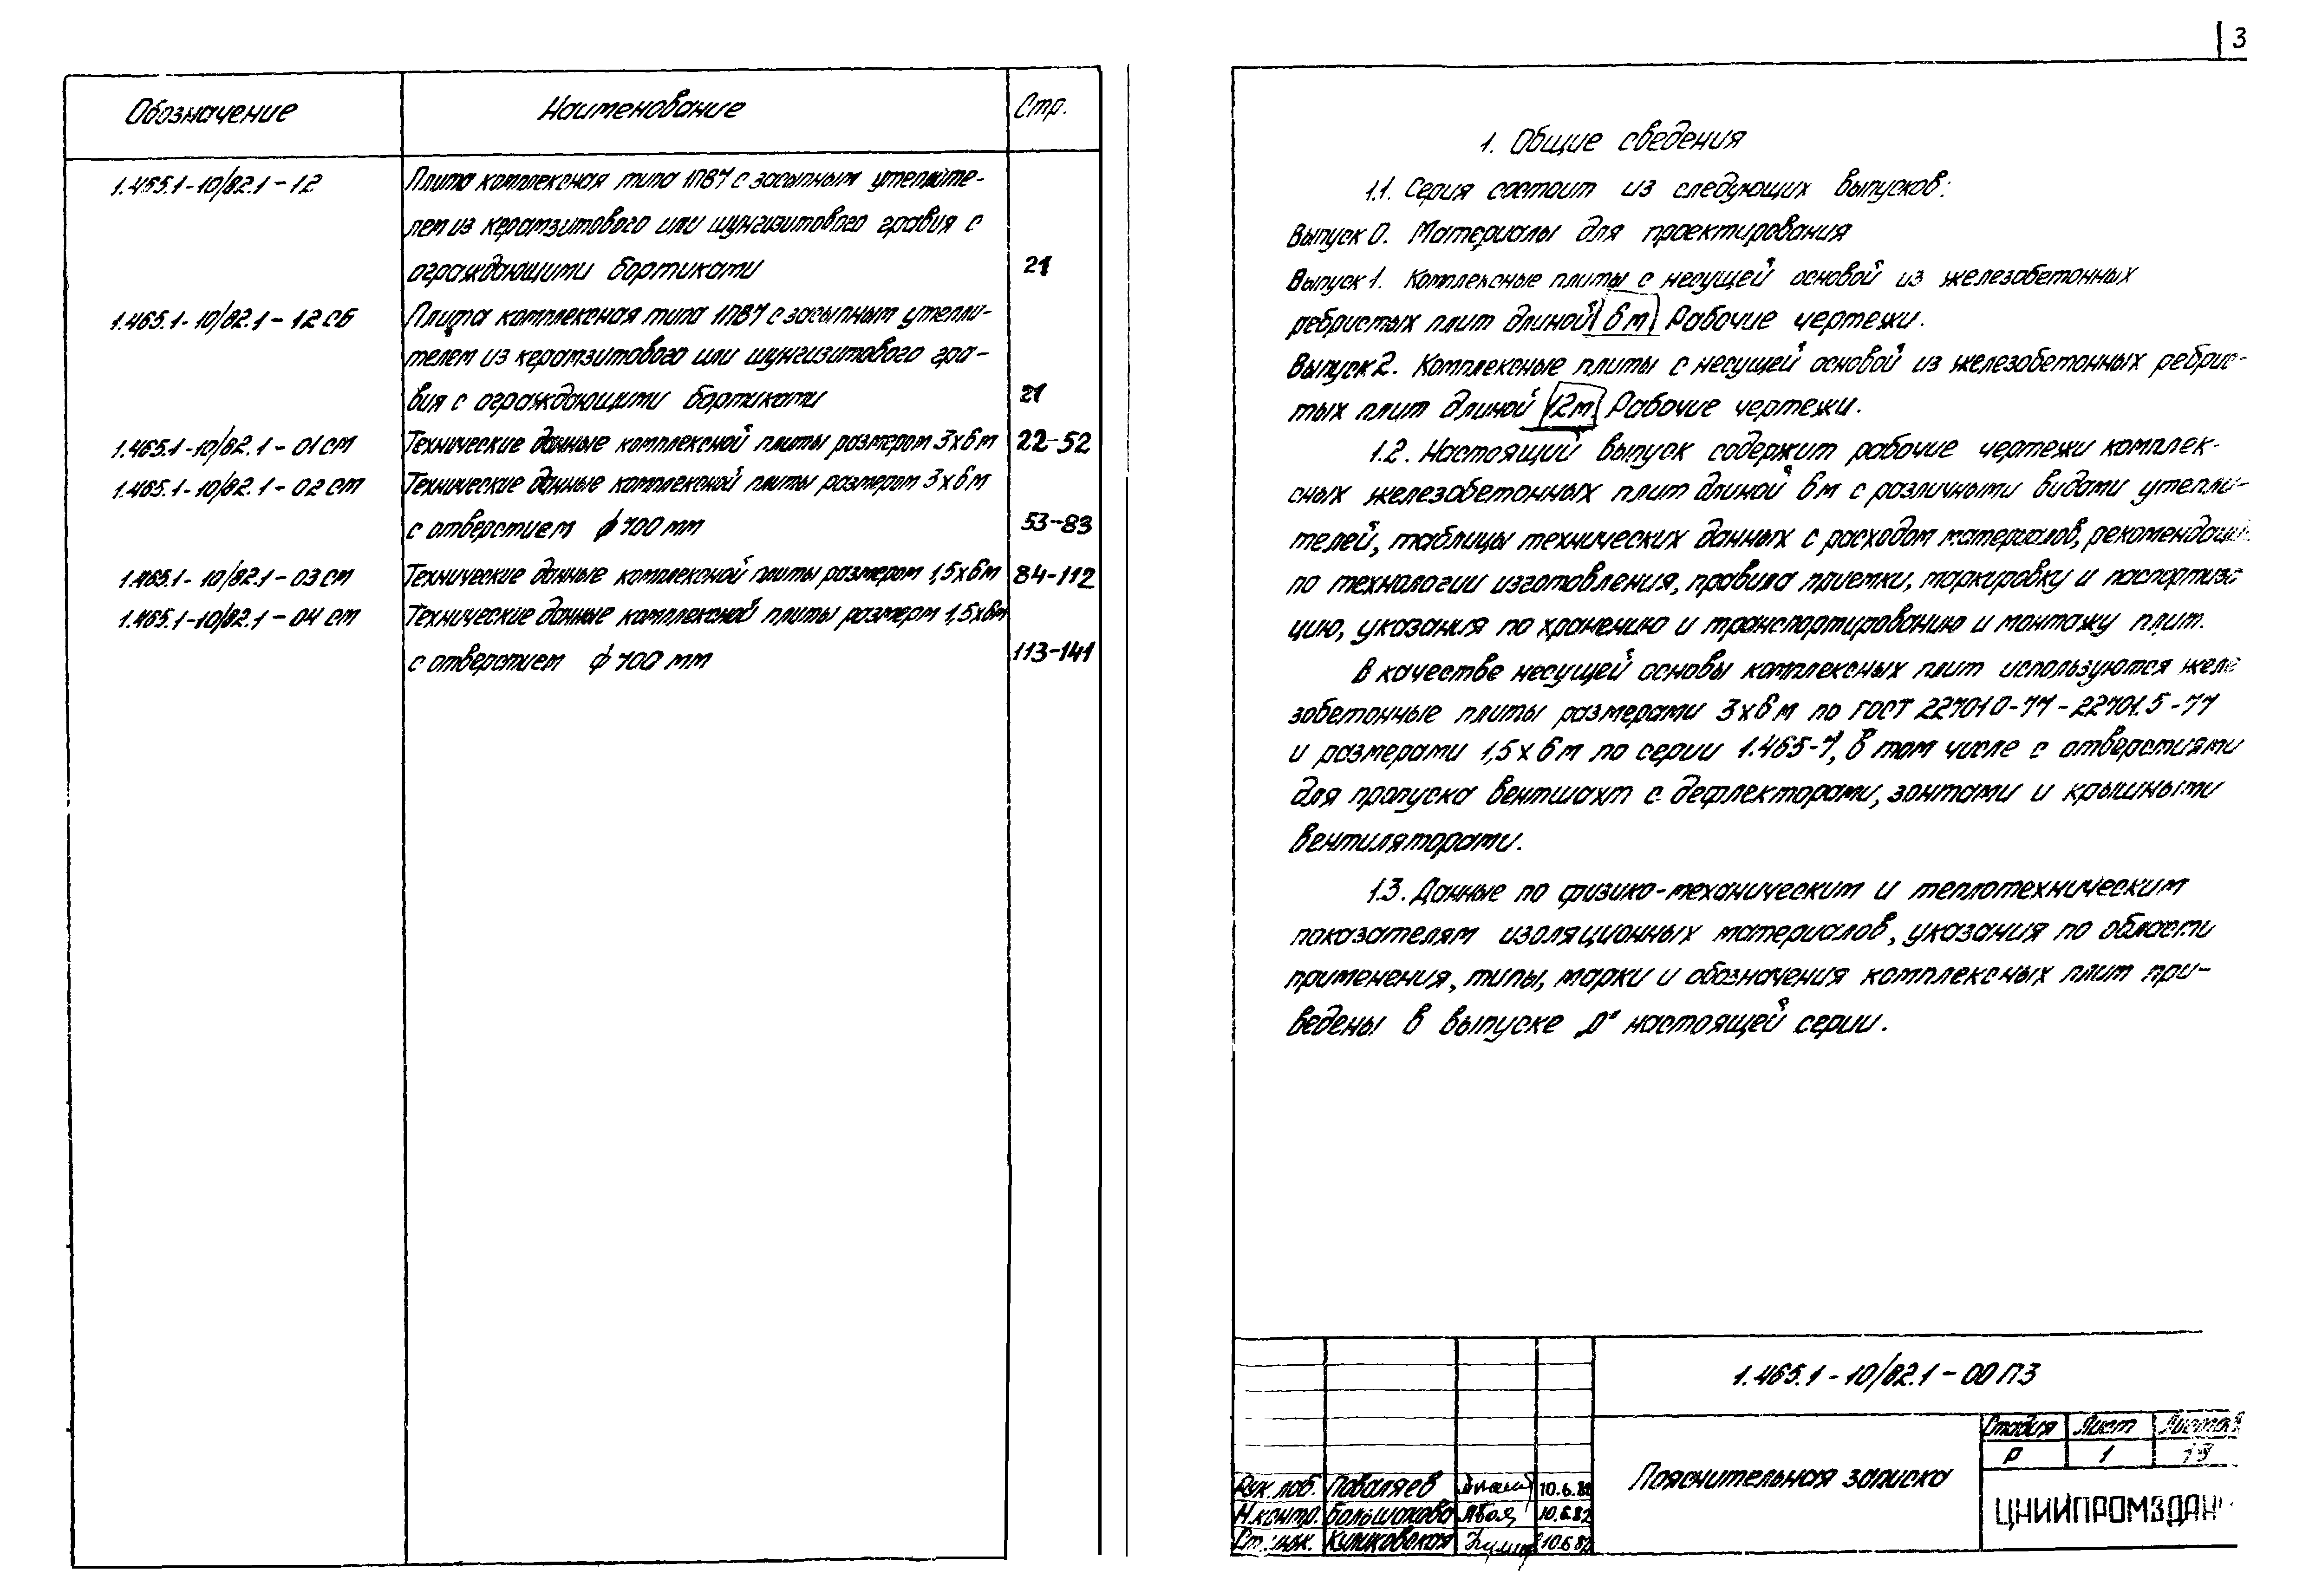 3
Обозначение Наименование Стр.
1.465.1-10/82.1-12 Плита комплексная типа 1ПВ7 с засыпным утеплите-
лем из керамзитового или шунгизитового гравия с
ограждающими бортиками 21
1.465.1-10/82.1-12 СБ Плита комплексная типа 1ПВ7 с засыпным утепли-
телем из керамзитового или шунгизитового гра-
вия с ограждающими бортиками 21
1.465.1-10/82.1-01 СМ Технические данные комплексной плиты размером 3х6 м 22-52
1.465.1-10/82.1-02 СМ Технические данные комплексной плиты размером 3х6 м
с отверстием ф 700 мм 53-83
1.465.1-10/82.1-03 СМ Технические данные комплексной плиты размером 1,5х6м 84-112
1.465.1-10/82.1-04 СМ Технические данные комплексной плиты размером 1,5х6м
с отверстием ф 700 мм 113-141
1. Общие сведения
1.1. Серия состоит из следующих выпусков:
Выпуск 0. Материалы для проектирования
Выпуск 1. Комплексные плиты с несущей основой из железобетонных
ребристых плит длиной 6 м. Рабочие чертежи.
Выпуск 2. Комплексные плиты с несущей основой из железобетонных ребрис-
тых плит длиной 12м. Рабочие чертежи.
1.2. Настоящий выпуск содержит рабочие чертежи комплек-
сных железобетонных плит длиной 6 м с различными видами утепли-
телей, таблицы технических данных с расходом материалов, рекомендации
по технологии изготовления, правила приемки, маркировку и паспортиза
цию, указания по хранению и транспортированию и монтажу плит.
В качестве несущей основы комплексных плит используются желе
зобетонные плиты размерами 3х6 м по ГОСТ 22701.0-77 - 22701.5-77
и размерами 1,5х6 м по серии 1.465-7, в том числе с отверстиями
для пропуска вентшахт с дефлекторами, зонтами и крышными
вентиляторами.
1.3. Данные по физико-механическим и теплотехническим
показателям изоляционных материалов, указания по области
применения, типы, марки и обозначения комплексных плит при-
ведены в выпуске „0" настоящей серии.
1.465.1-10/82.1-00 ПЗ
Пояснительная записка
Стадия Лист Листов
Р 1
ЦНИИПРОМЗДАН
Рук. лаб. Поваляев 10.6.82
Н.контр. Большакова 10.6.82
Ст. инж. Куликовская 10.6.82